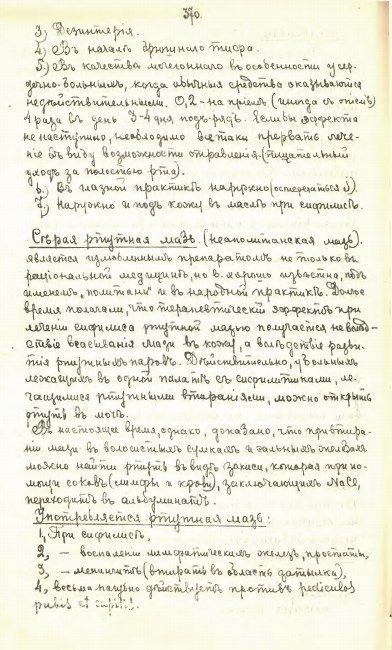 370.
3) Дезинтерія.
4) Въ началѣ брюшнаго тифа.
5) Въ качествѣ мочегоннаго въ особенности у сер-
дечно-больныхъ, когда обычныя средства оказываются
недѣйствительными. 0,2-на пріемъ (иногда съ опіемъ)
4 раза въ день 3-4 дня подъ-рядъ. Если бы эффекта
не наступило, необходимо все таки прервать лече-
ніе въ виду возможности отравленія. (тщательный
уходъ за полостью рта).
6.) Въ глазной практикѣ наружно (остерегаться J).
7.) Наружно и подъ кожу въ маслѣ при сифилисѣ.
Сѣрая ртутная мазь. (неаполитанская мазь).
является излюбленнымъ препаратомъ не только въ
раціональной медицинѣ, но и хорошо извѣстна, подъ
именемъ „политани" и въ народной практикѣ. Долгое
время полагали, что терапевтическій эффектъ при
леченіи сифилиса ртутной мазью получается не вслѣд-
ствіе всасыванія мази въ кожу, а вслѣдствіе разви-
тія ртутныхъ паровъ. Дѣйствительно, у больныхъ
лежащихъ въ одной палатѣ съ сифилитиками, ле-
чащимися ртутными втираніями, можно открыть
ртуть въ мочѣ.
Въ настоящее время, однако, доказано, что при втира-
ніи мази въ волосяныхъ сумкахъ и сальныхъ железахъ
можно найти ртуть въ видѣ закиси, которая при по-
мощи соковъ (лимфы и крови), заключающихъ NaCl,
переходитъ въ альбуминатъ.
Употребляется ртутная мазь:
1, При сифилисѣ,
2, — воспаленіи лимфатическихъ железъ, простаты,
3, — менингитѣ (втирать въ область затылка),
4, весьма пагубно дѣйствуетъ противъ pediculos
pubis et capitis.